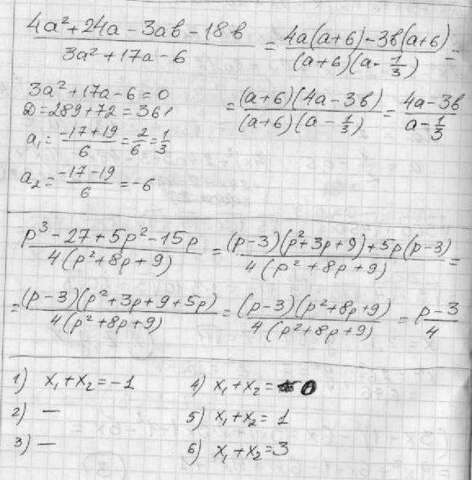 (4a² + 24a - 3ab - 18b)/(3a² + 17a - 6) = (4a(a+6) - 3b(a+6))/((a+6)(a - 1/3)) =
3a² + 17a - 6 = 0
D = 289 + 72 = 361
a₁ = (-17+19)/6 = 2/6 = 1/3
a₂ = (-17-19)/6 = -6
= ((a+6)(4a-3b))/((a+6)(a - 1/3)) = (4a-3b)/(a - 1/3)
(p³ - 27 + 5p² - 15p)/(4(p² + 8p + 9)) = ((p-3)(p² + 3p + 9) + 5p(p-3))/(4(p² + 8p + 9)) =
= ((p-3)(p² + 3p + 9 + 5p))/(4(p² + 8p + 9)) = ((p-3)(p² + 8p + 9))/(4(p² + 8p + 9)) = (p-3)/4
1) x₁ + x₂ = -1
2) —
3) —
4) x₁ + x₂ = 0
5) x₁ + x₂ = 1
6) x₁ + x₂ = 3